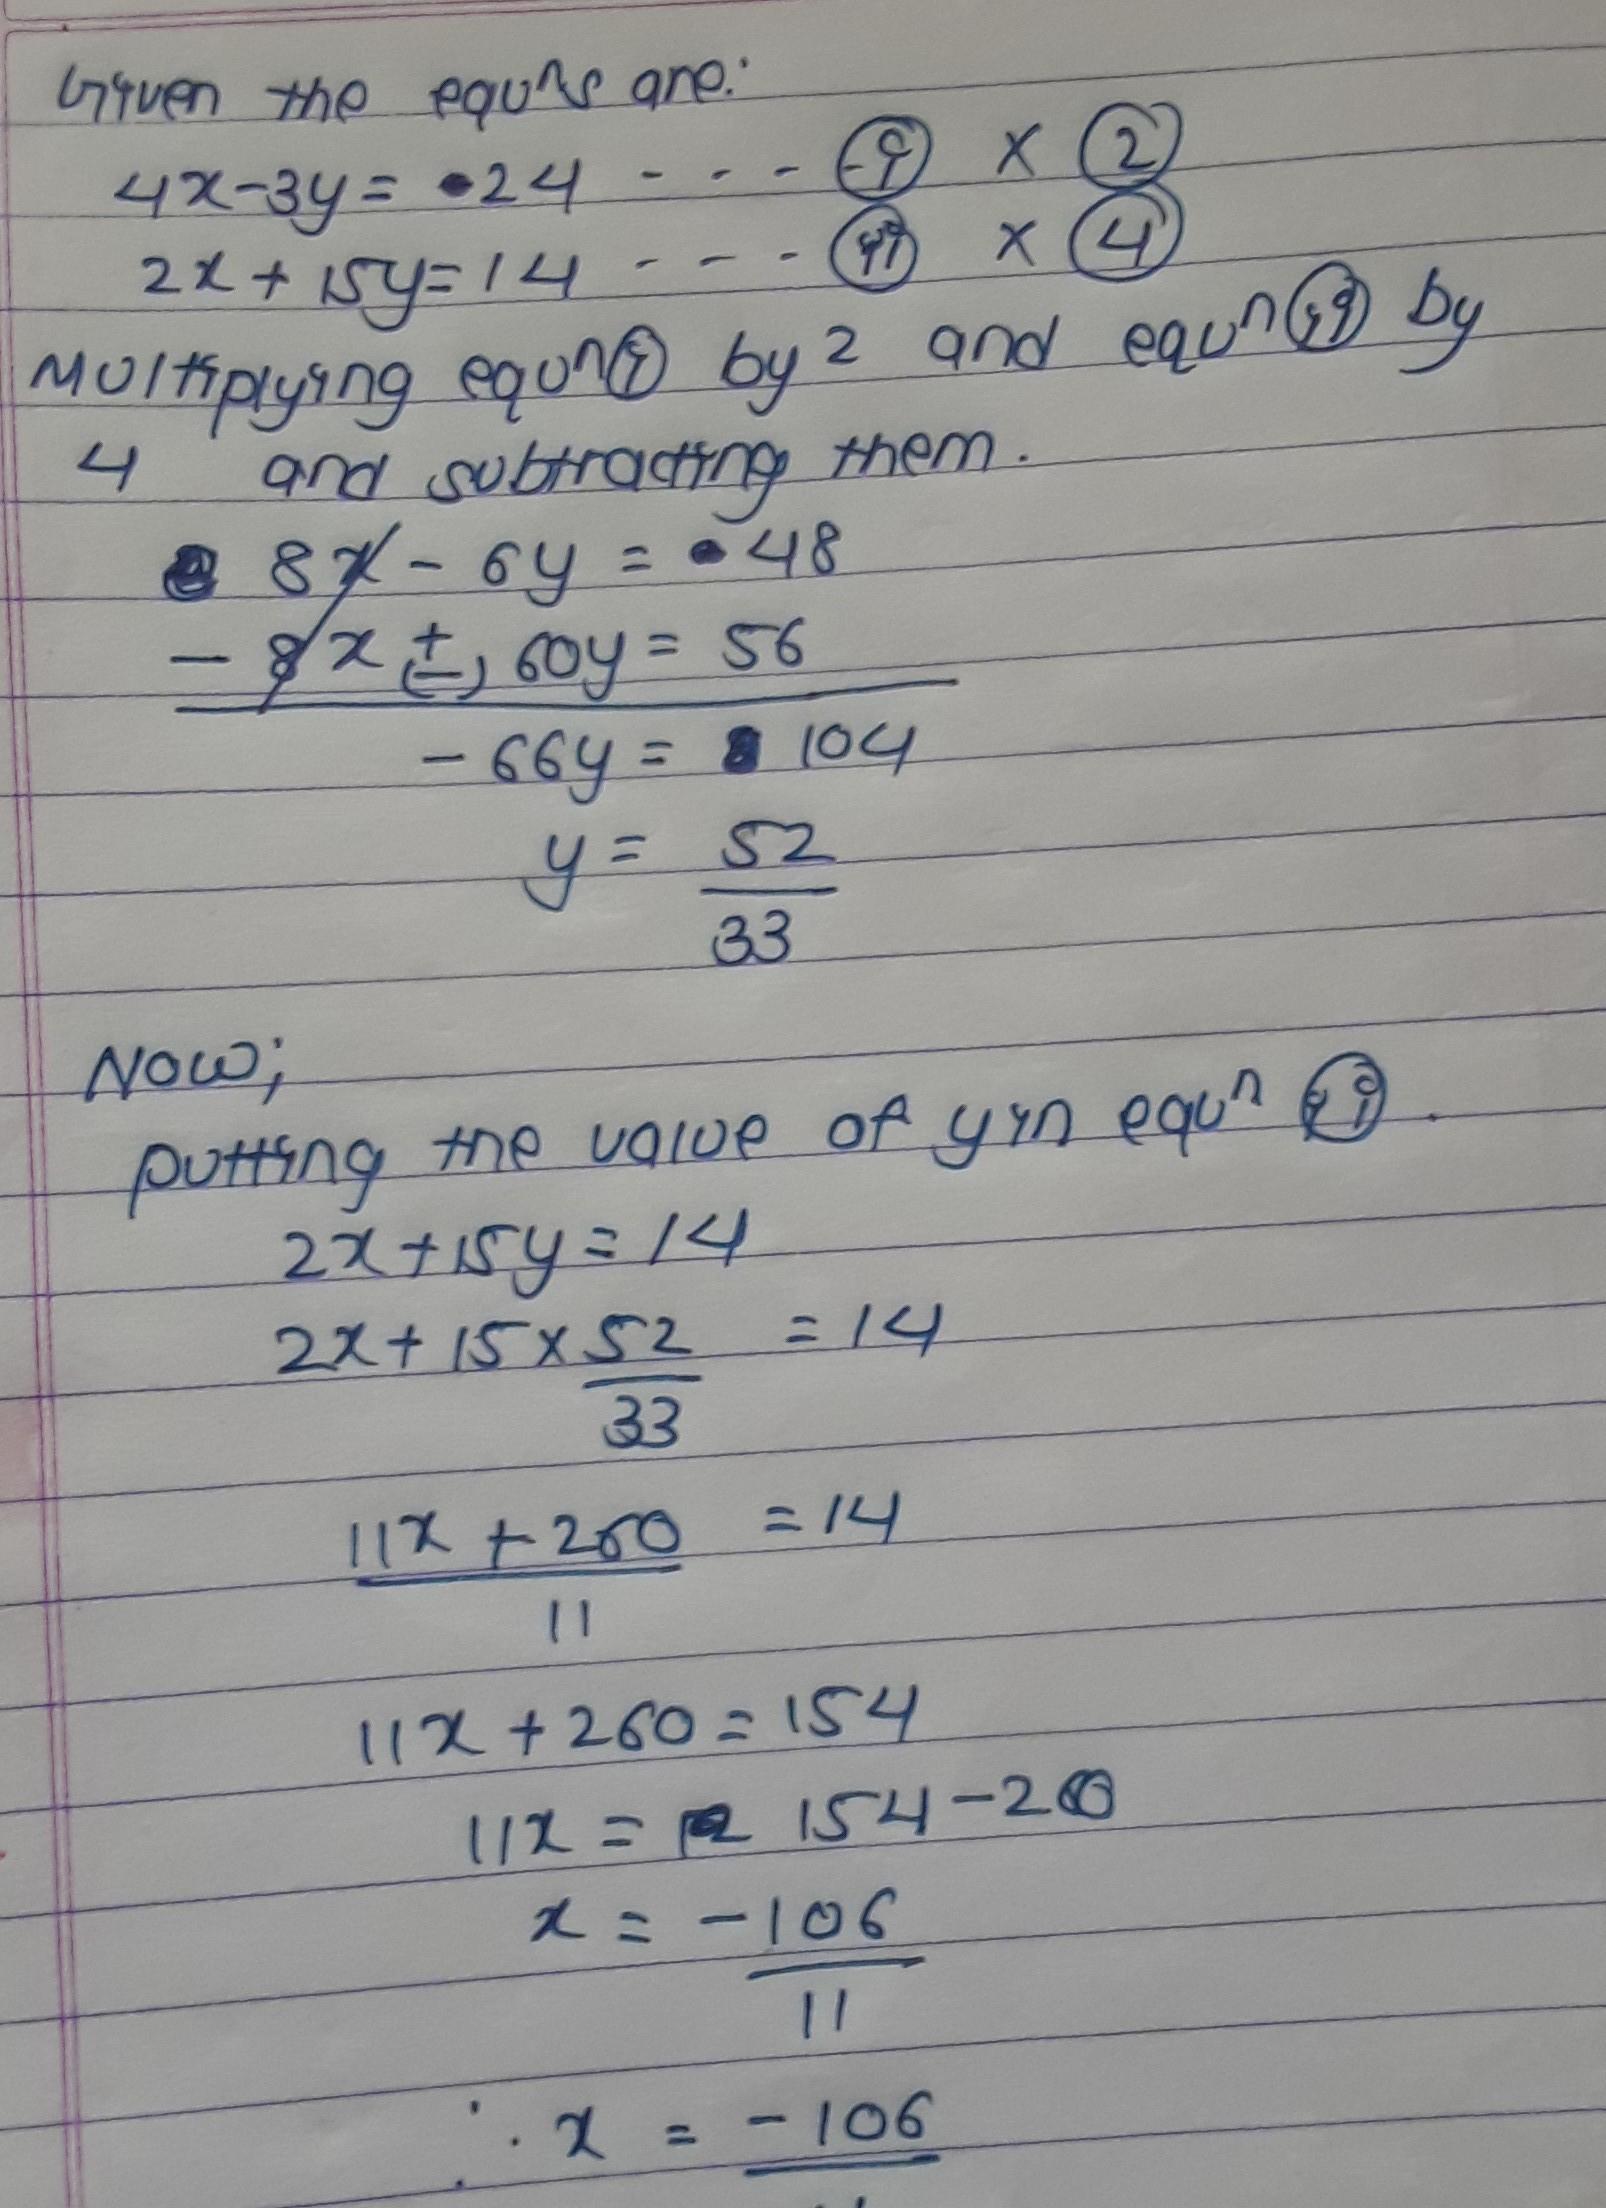 Given the equⁿs are:
4x-3y= 24 - - - (i) × (2)
2x+15y=14 - - - (ii) × (4)
Multiplying equⁿ(i) by 2 and equⁿ(ii) by
4 and subtracting them.
8x - 6y = 48
- 8x +(-) 60y = 56
-66y = 104
y = 52/33
Now;
putting the value of y in equⁿ (ii).
2x+15y=14
2x+15×52/33 =14
11x+260/11 =14
11x+260=154
11x = 154-260
x = -106/11
∴ x = -106